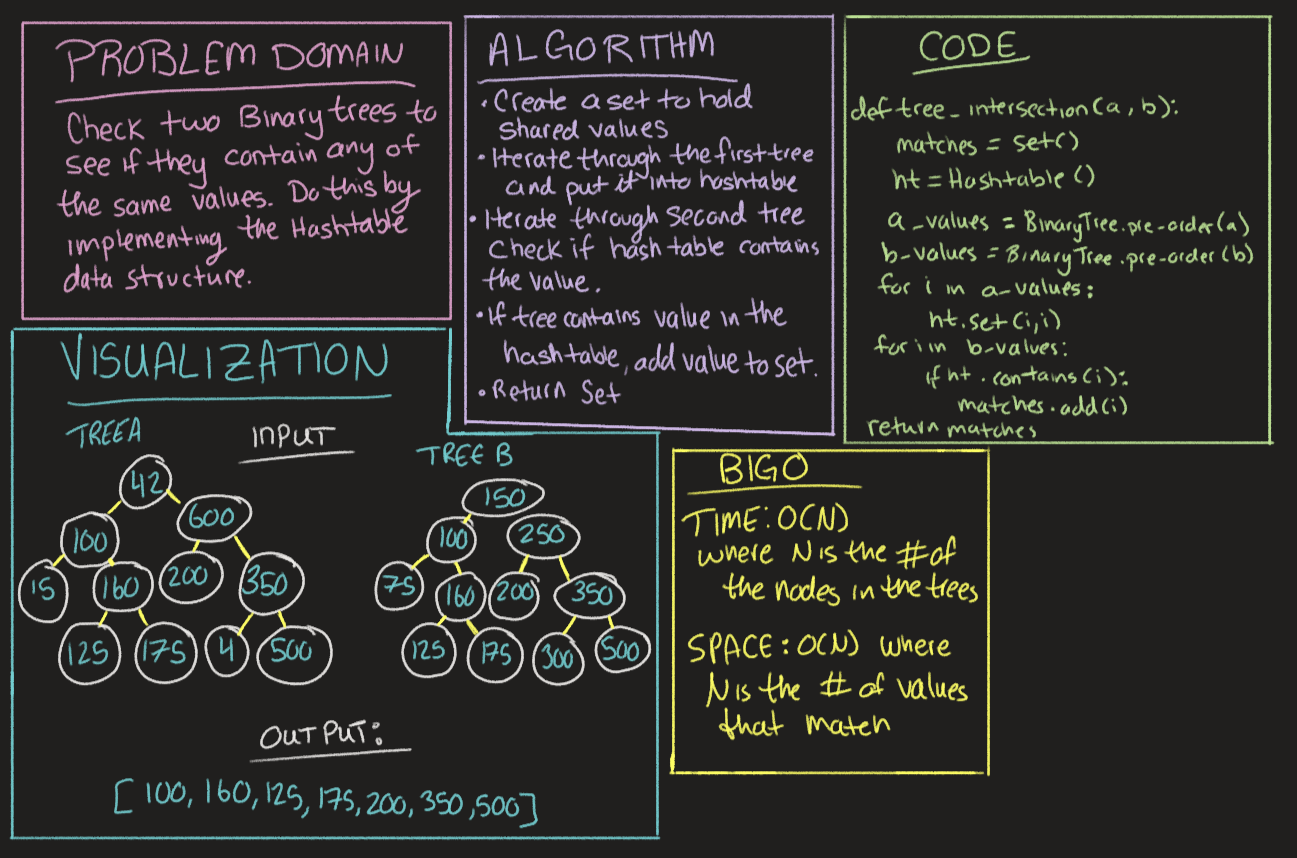 PROBLEM DOMAIN
Check two Binary trees to
see if they contain any of
the same values. Do this by
implementing the Hashtable
data structure.
ALGORITHM
• Create a set to hold
shared values
• Iterate through the first tree
and put it into hashtable
• Iterate through second tree
Check if hash table contains
the value.
• If tree contains value in the
hashtable, add value to set.
• Return Set
CODE
def tree_intersection(a, b):
matches = set()
ht = Hashtable()
a_values = BinaryTree.pre-order(a)
b-values = BinaryTree.pre-order(b)
for i in a-values:
ht.set(i,i)
for i in b-values:
if ht.contains(i):
matches.add(i)
return matches
VISUALIZATION
TREE A
INPUT
TREE B
42
100
600
15
160
200
350
125
175
4
500
150
100
250
75
160
200
350
125
175
300
500
OUTPUT:
[100, 160, 125, 175, 200, 350, 500]
BIG O
TIME: O(N)
where N is the # of
the nodes in the trees
SPACE: O(N) where
N is the # of values
that match